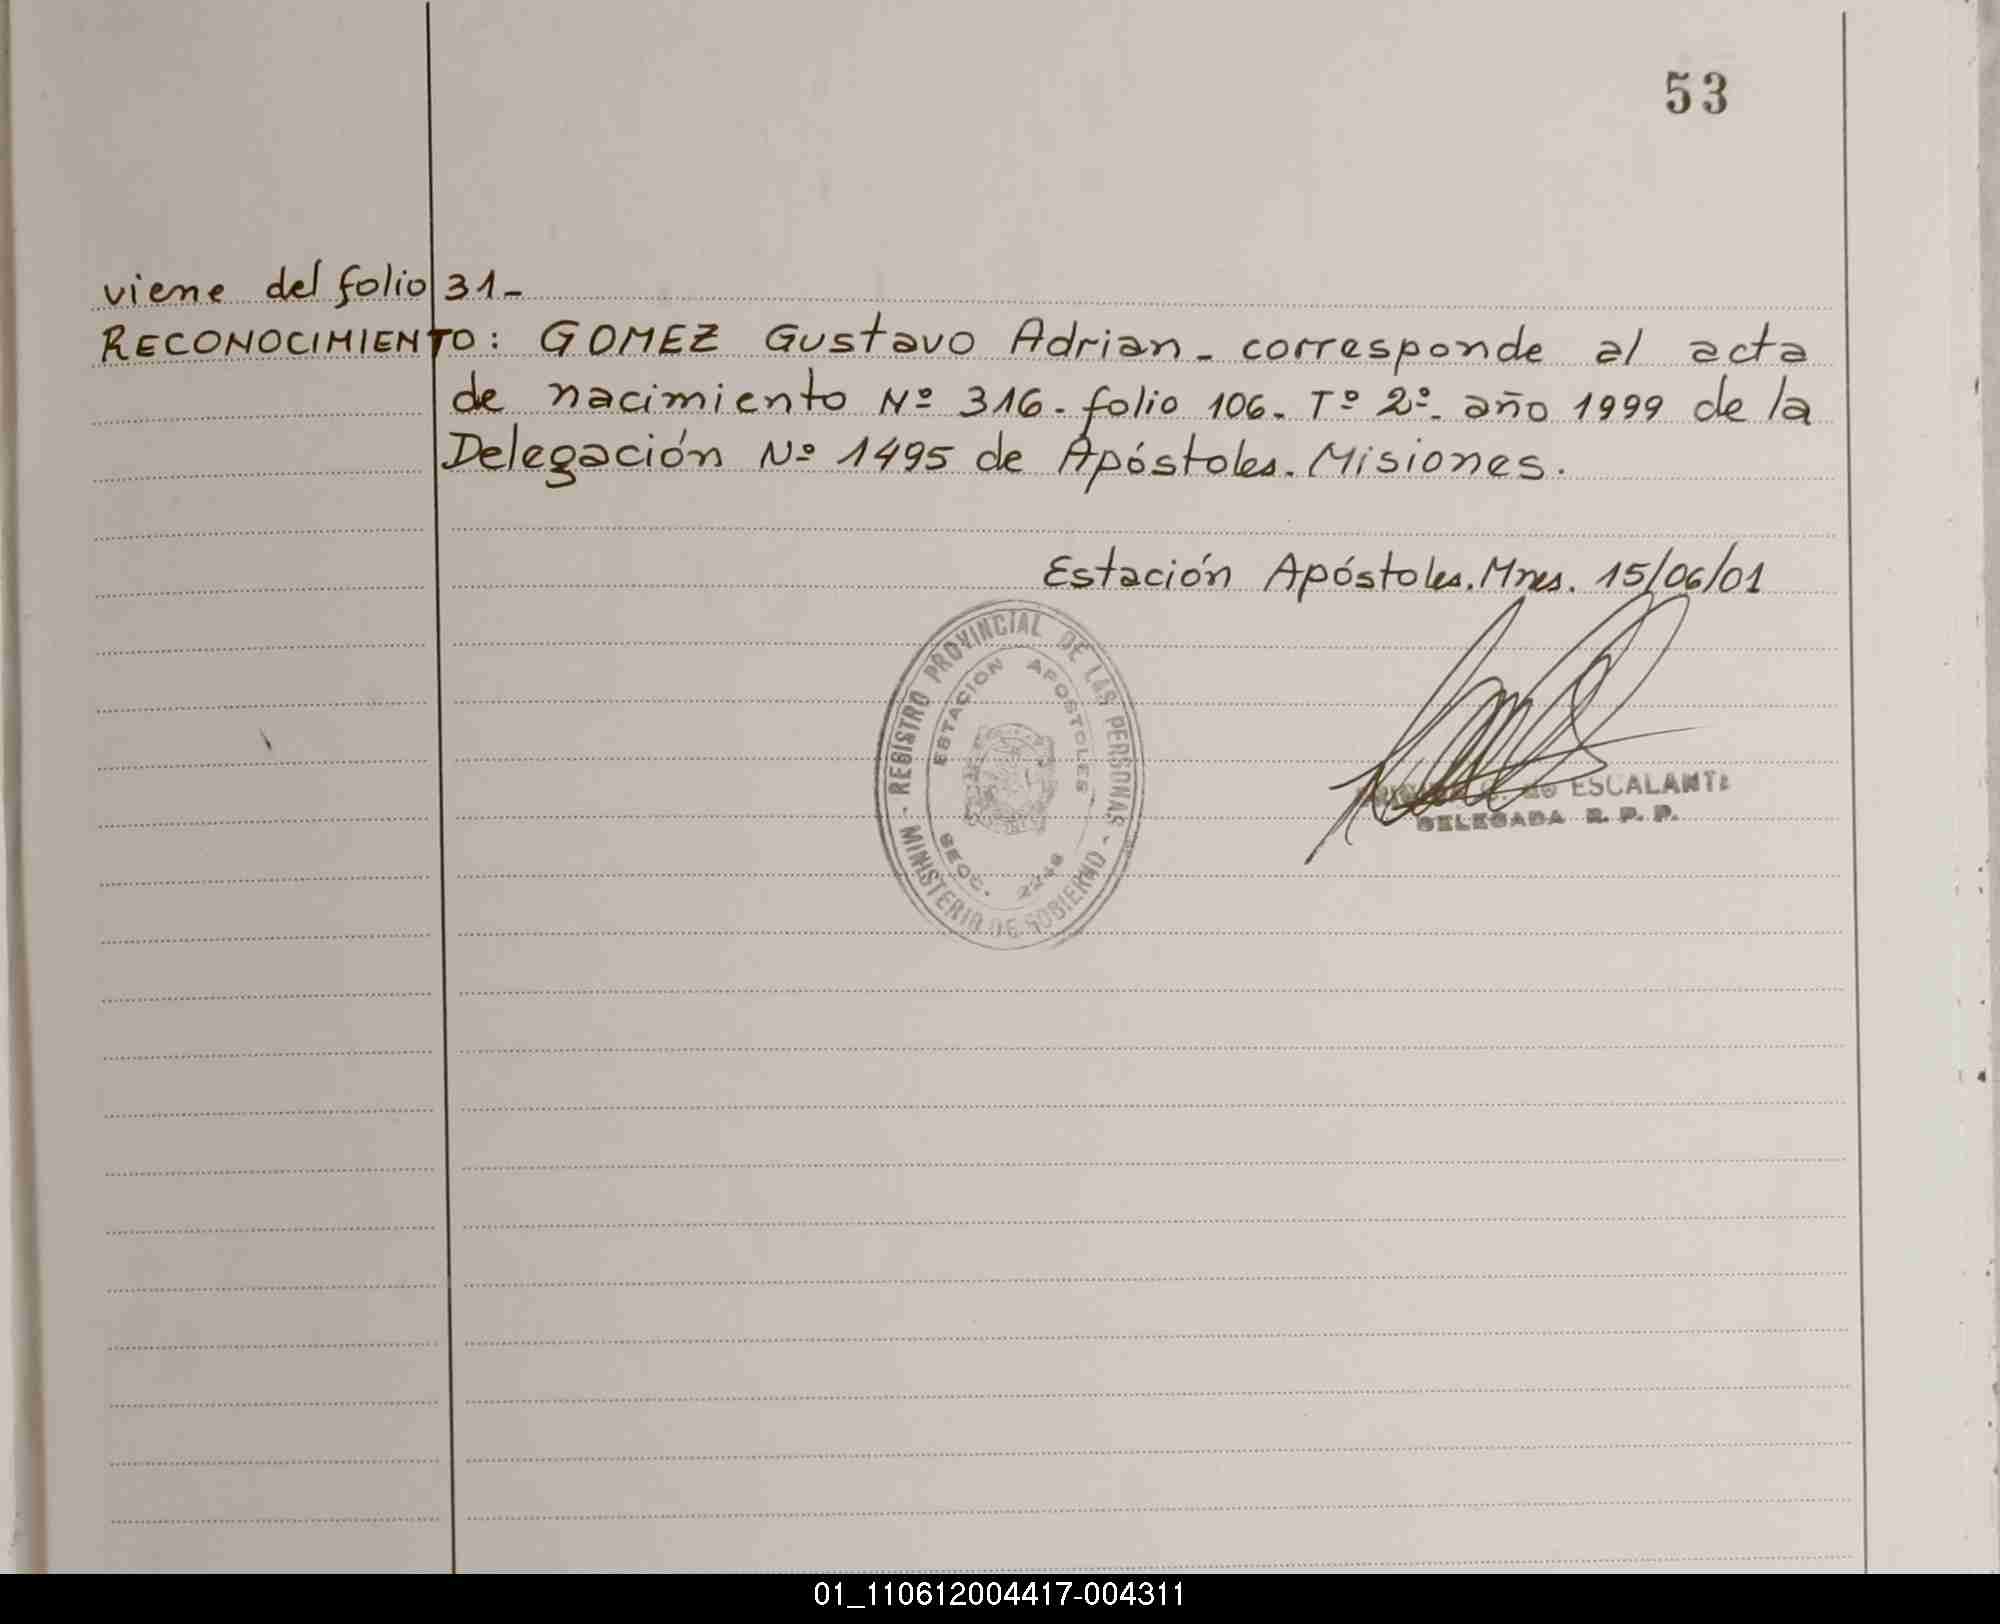 53
viene del folio 31-
RECONOCIMIENTO: GOMEZ Gustavo Adrian - corresponde al acta
de nacimiento Nº 316 - folio 106 - Tº 2º - año 1999 de la
Delegación Nº 1495 de Apóstoles. Misiones.
Estación Apóstoles. Mnes. 15/06/01
REGISTRO PROVINCIAL DE LAS PERSONAS -
ESTACION APOSTOLES
SECC.
- MINISTERIO DE GOBIERNO
de ESCALANTE
DELEGADA R. P. P.
01_110612004417-004311